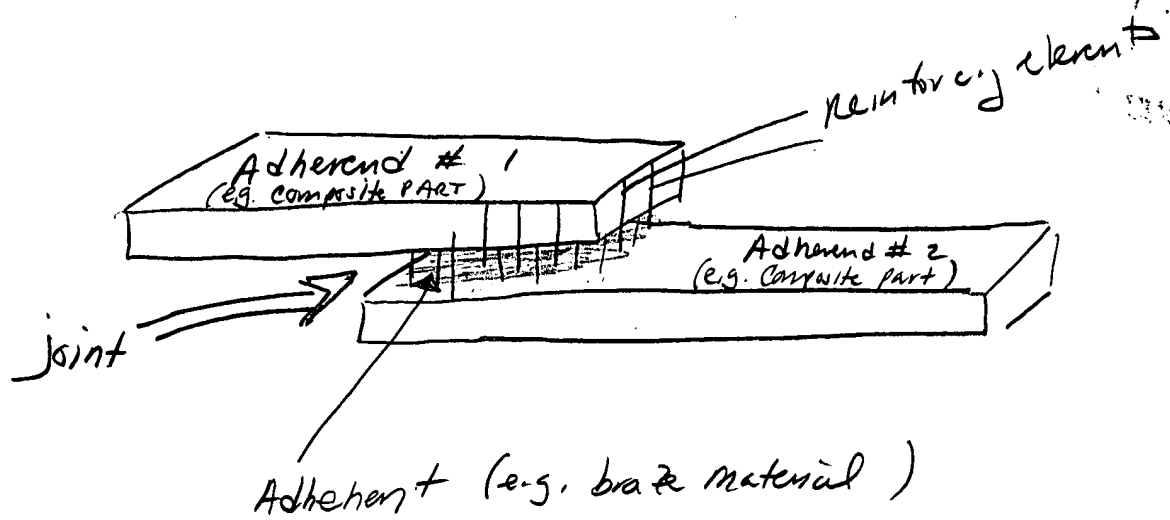 Reinforcing elements
Adherend # 1
(e.g. composite PART)
Adherend # 2
(e.g. Composite part)
joint
Adherent (e.g. braze material)